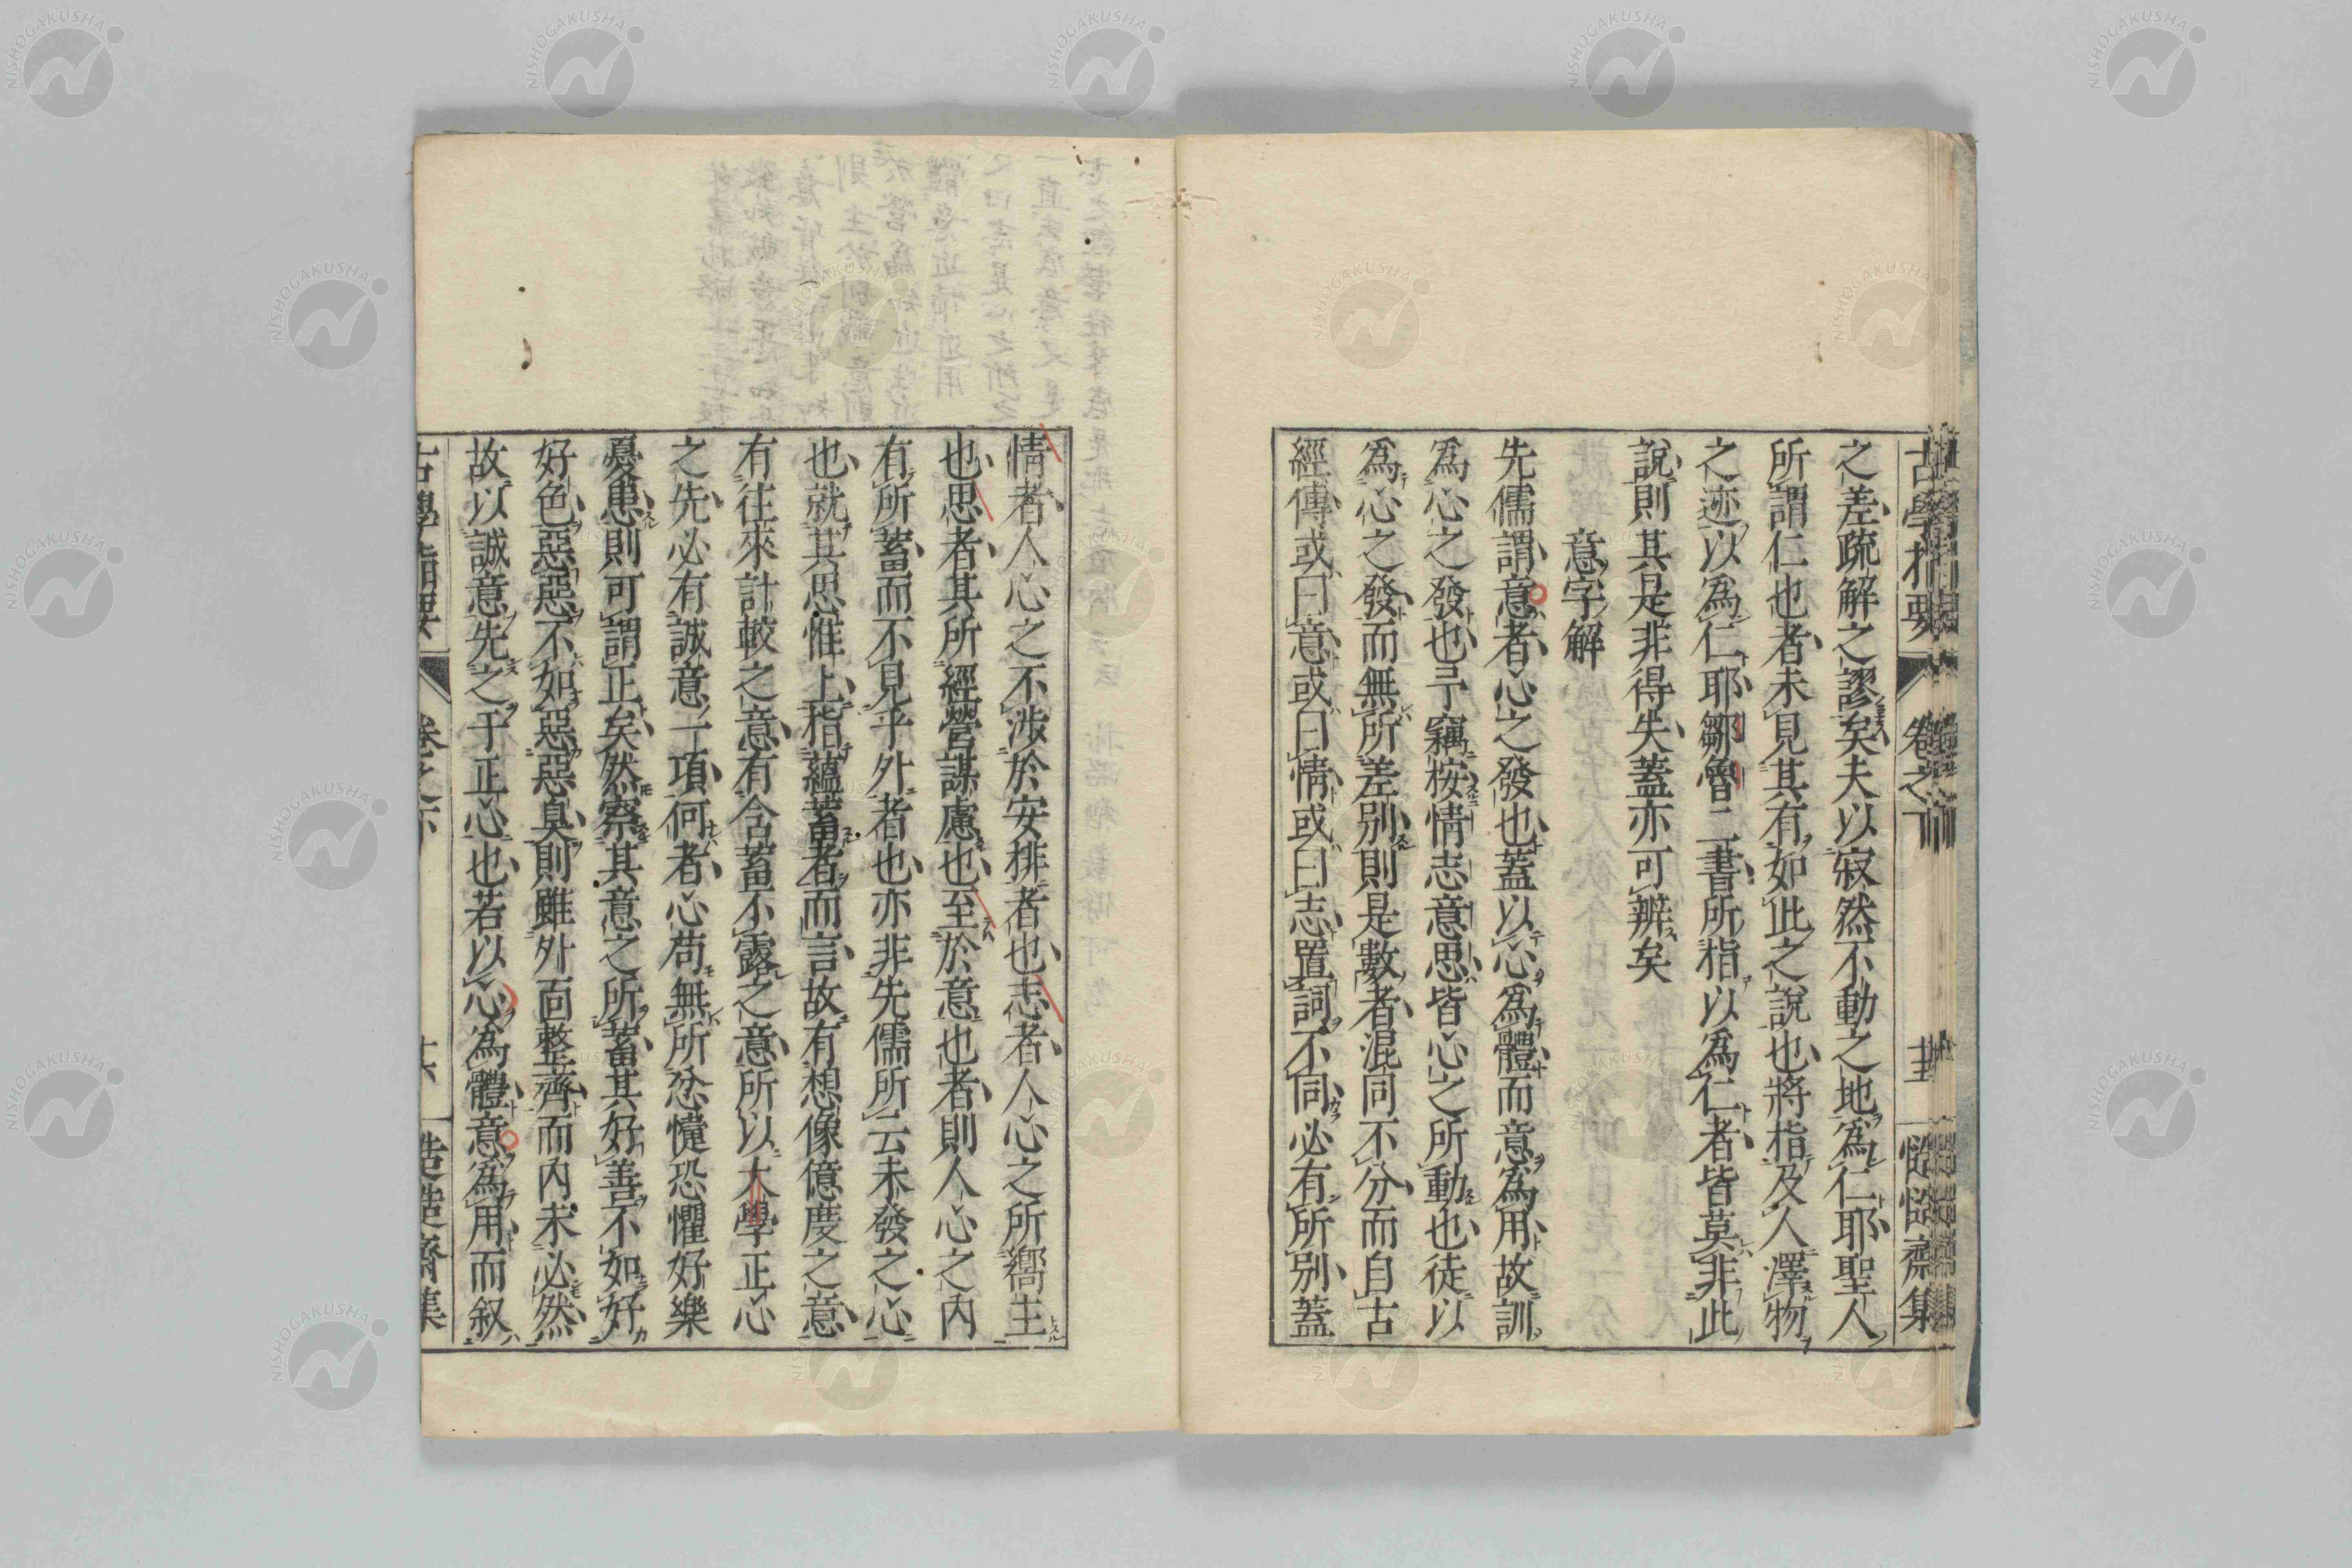 之差疏解之謬矣夫以寂然不動之地爲仁耶聖人
所謂仁也者未見其有如此之說也將指及人澤物
之迹以爲仁耶鄒魯二書所指以爲仁者皆莫非此
說則其是非得失蓋亦可辨矣
意字解
先儒謂意者心之發也蓋以心爲體而意爲用故訓
爲心之發也予竊桉情志意思皆心之所動也徒以
爲心之發而無所差別則是數者混同不分而自古
經傳或曰意或曰情或曰志置詞不同必有所別蓋
情者人心之不涉於安排者也志者人心之所嚮主
也思者其所經營謀慮也至於意也者則人心之內
有所蓄而不見乎外者也亦非先儒所云未發之心
也就其思惟上指蘊蓄者而言故有想像億度之意
有往來計較之意有含蓄不露之意所以大學正心
之先必有誠意一項何者心苟無所忿懥恐懼好樂
憂患則可謂正矣然察其意之所蓄其好善不如好
好色惡惡不如惡惡臭則雖外面整齊而內未必然
故以誠意先之于正心也若以心爲體意爲用而叙
古學指要
卷之下
慥慥齋集
NISHOGAKUSHA